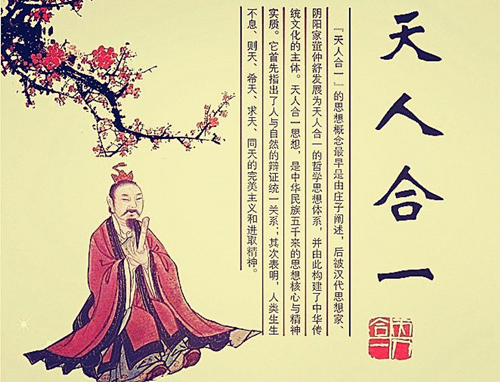 天人合一
『天人合一』的思想概念最早是由庄子阐述，后被汉代思想家、
阴阳家董仲舒发展为天人合一的哲学思想体系，并由此构建了中华传
统文化的主体。天人合一思想，是中华民族五千来的思想核心与精神
实质。它首先指出了人与自然的辩证统一关系；其次表明，人类生生
不息、则天、希天、求天、同天的完美主义和进取精神。
天人
合一